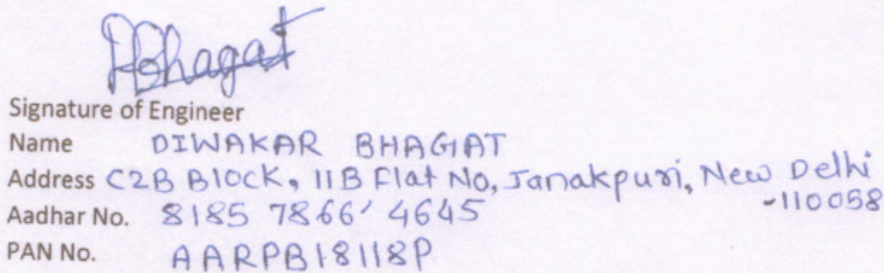 DBhagat
Signature of Engineer
Name DIWAKAR BHAGAT
Address C2B BlOCK, 11B Flat No, Janakpuri, New Delhi
-110058
Aadhar No. 8185 7866' 4645
PAN No. AARPB18118P